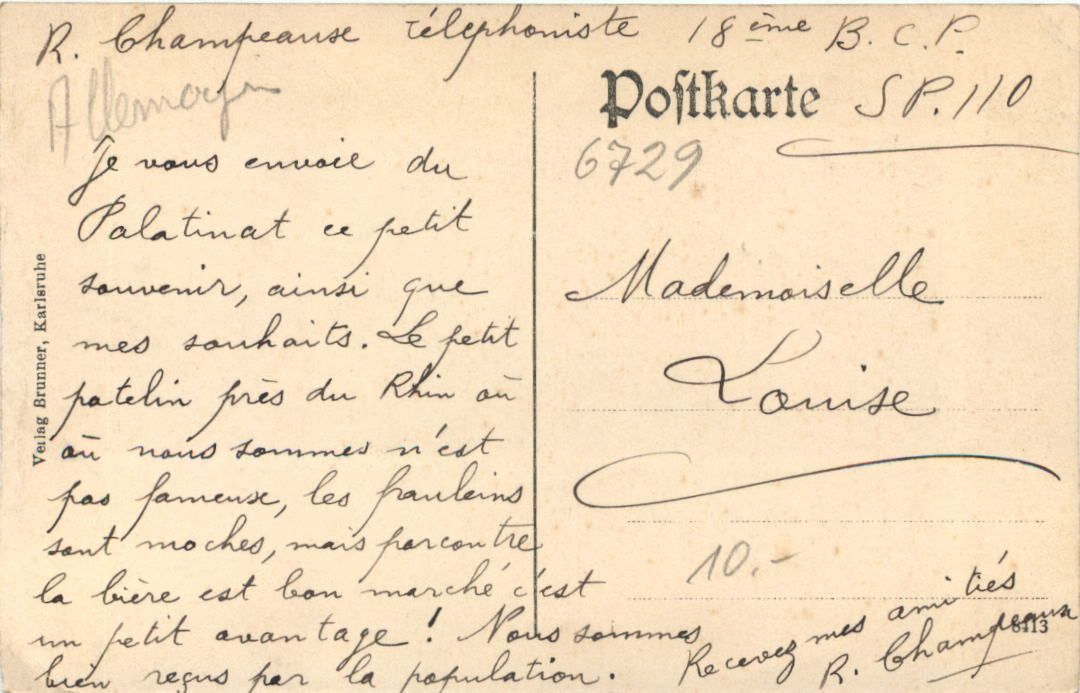 R. Champeaux Téléphoniste 18ème B.C.P.
SP.110
Allemagne
Postkarte
6729
Je vous envoie du
Palatinat ce petit
souvenir, ainsi que
mes souhaits. Le petit
patelin près du Rhin où
où nous sommes n'est
pas fameux, les frauleins
sont moches, mais parcontre
la bière est bon marché c'est
un petit avantage ! Nous sommes
bien reçus par la population.
Recevez mes amitiés
R. Champeaux
Mademoiselle
Louise
10.-
8113
Verlag Brunner, Karlsruhe